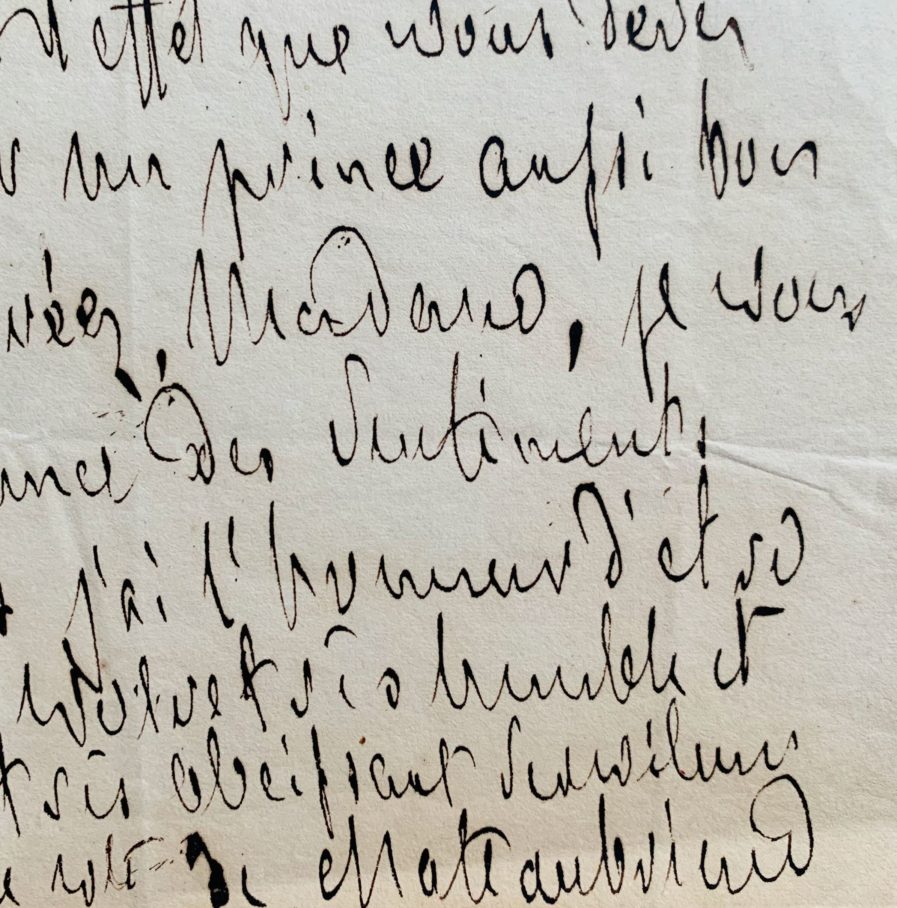 l'effet que vous devez
un prince aussi bon
Madame, je vous
des sentiments
j'ai l'honneur d'etre
votre très humble et
très obéissant serviteur
de chateaubriand